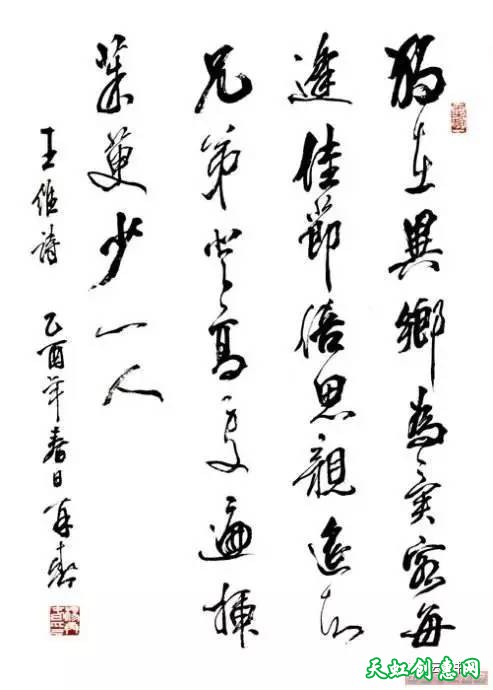 獨在異鄉為異客每
逢佳節倍思親遙知
兄弟登高處遍插
茱萸少一人
王維詩 乙酉年春日
天虹创意网